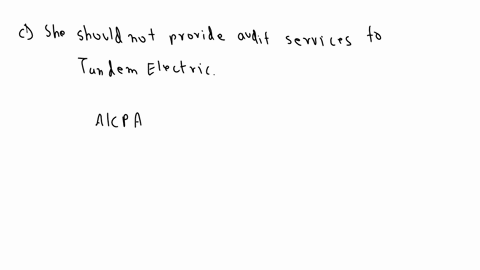 c) She should not provide audit services to
Tandem Electric.
AICPA